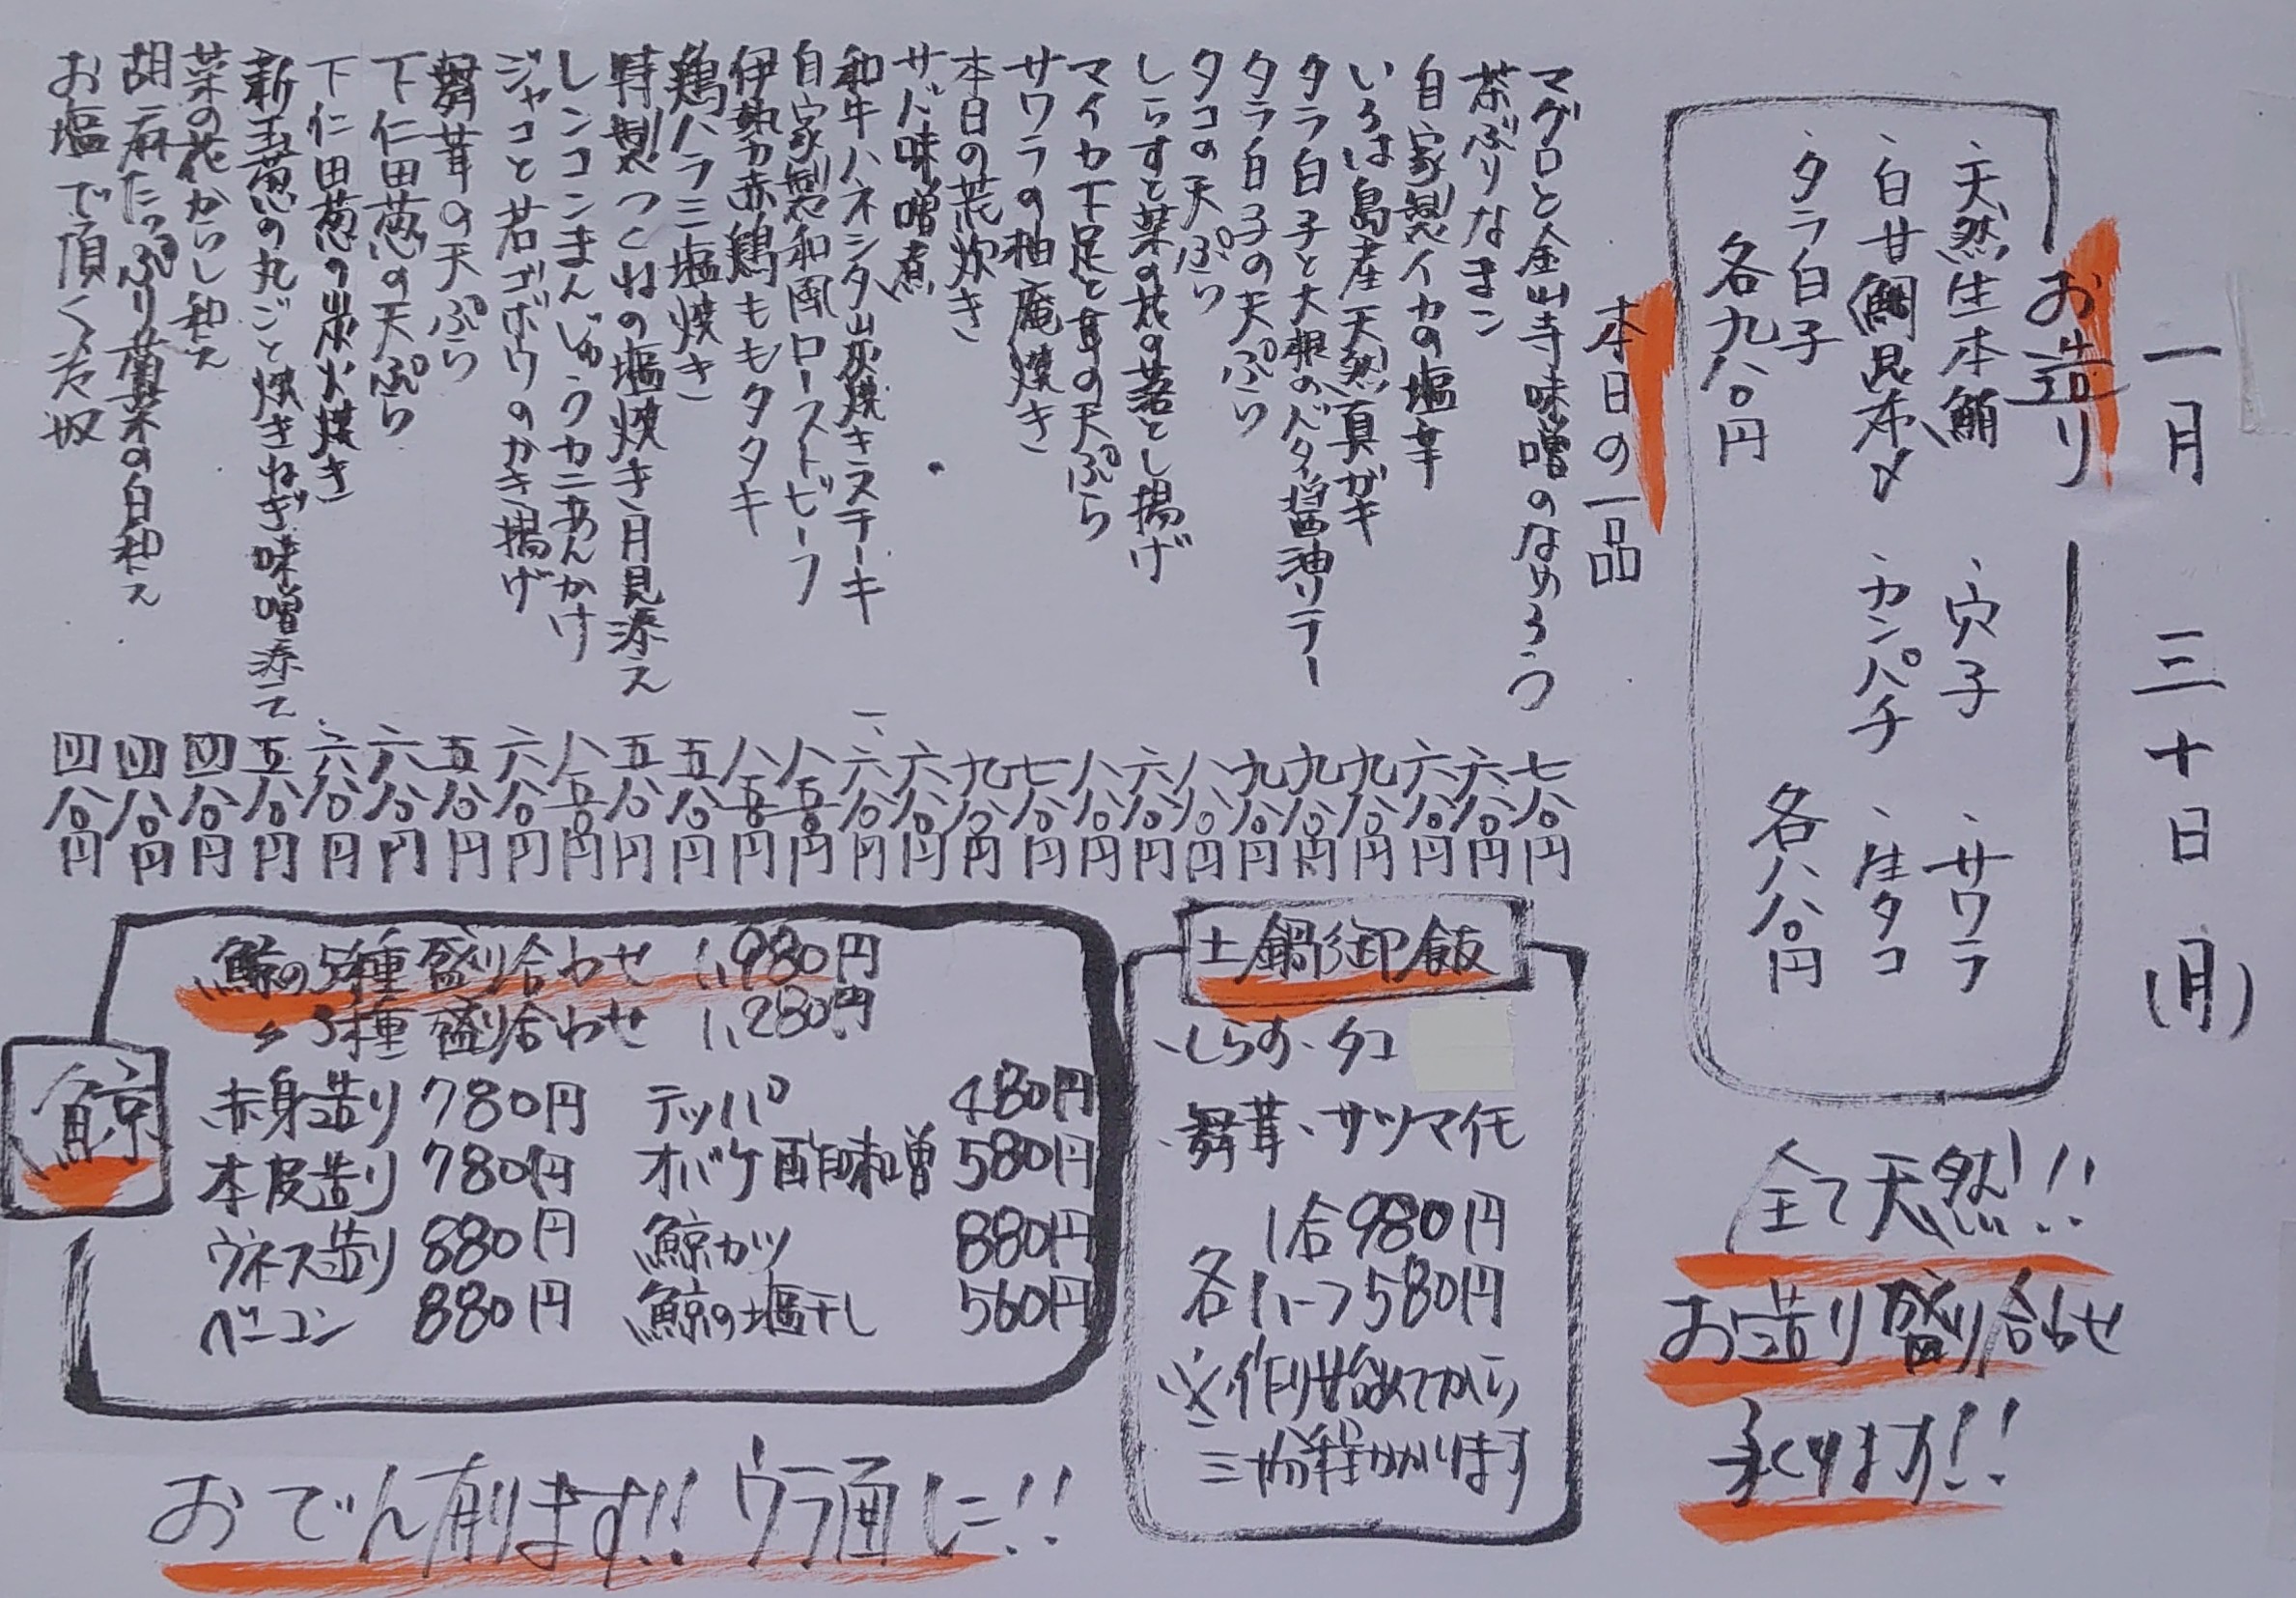 一月 三十日 (月)
お造り
・天然生本鮪 ・穴子 ・サワラ
・白甘鯛昆布〆 ・カンパチ ・生タコ
・タラ白子
各九八〇円
各八八〇円
全て天然!!
お造り盛り合わせ
承ります!!
本日の一品
マグロと金山寺味噌のなめろう 七八〇円
茶ぶりなまこ 六八〇円
自家製イカの塩辛 六八〇円
いろは島産天然真ガキ 九八〇円
タラ白子と大根のバタ醤油ソテー 九八〇円
タラ白子の天ぷら 九八〇円
タコの天ぷら 八八〇円
しらすと菜の花の落とし揚げ 六八〇円
マイカ下足と茸の天ぷら 八八〇円
サワラの柚庵焼き 七八〇円
本日の荒炊き 九八〇円
サバ味噌煮 六八〇円
和牛ハネシタ炭焼きステーキ 一、六八〇円
自家製和風ローストビーフ 八五〇円
伊勢赤鶏ももタタキ 八五〇円
鶏ハラミ塩焼き 五八〇円
特製つくねの塩焼き月見添え 五八〇円
レンコンまんじゅうカニあんかけ 八五〇円
ジャコと若ゴボウのかき揚げ 六八〇円
舞茸の天ぷら 五八〇円
下仁田葱の天ぷら 六八〇円
下仁田葱の炭火焼き 六八〇円
新玉葱の丸ごと焼きねぎ味噌添え 五八〇円
菜の花からし和え 四八〇円
胡麻たっぷり菊菜の白和え 四八〇円
お塩で頂く冷奴 四八〇円
土鍋御飯
・しらす・タコ
・舞茸・サツマイモ
各
1合980円
ハーフ580円
※作り始めてから
三十分程かかります
鯨
鯨の5種盛り合わせ 1,980円
〃3種盛り合わせ 1,280円
赤身造り 780円 テッパ 480円
本皮造り 780円 オバケ酢味噌 580円
ウネス造り 880円 鯨カツ 880円
ベーコン 880円 鯨の塩干し 560円
おでん有ります!! ウラ面に!!